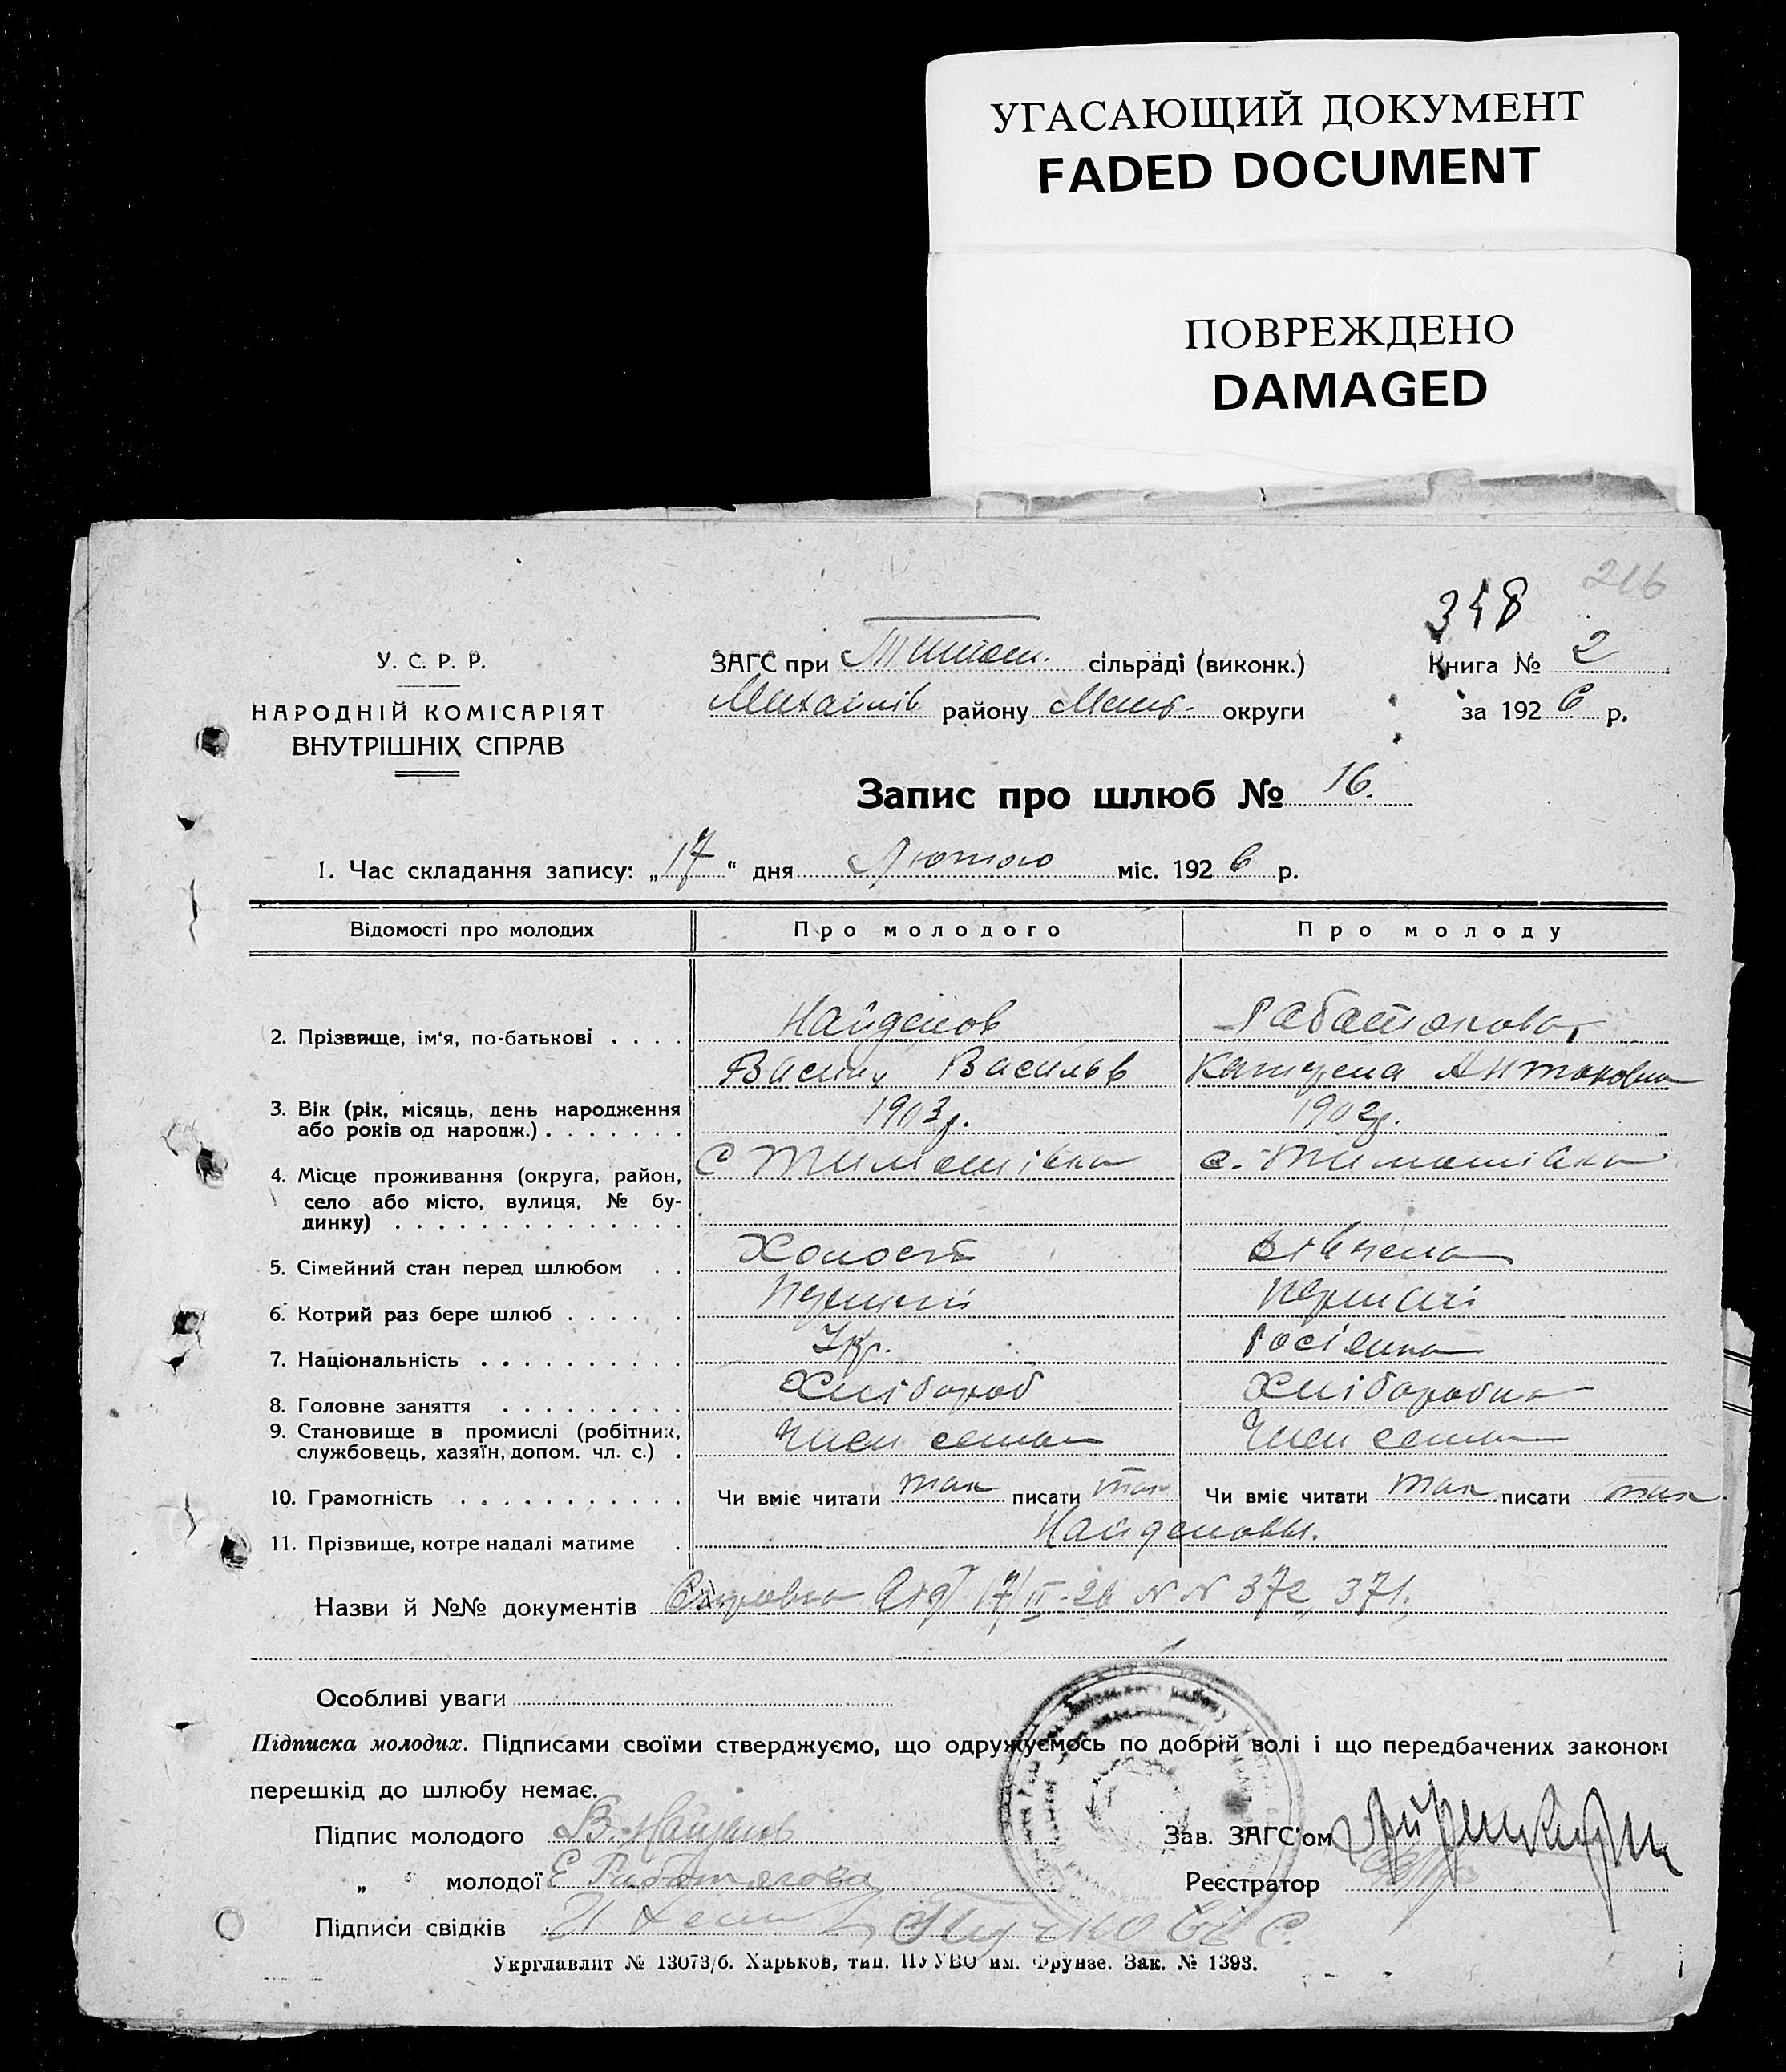 УГАСАЮЩИЙ ДОКУМЕНТ
FADED DOCUMENT
ПОВРЕЖДЕНО
DAMAGED
216
358
У. С. Р. Р.
НАРОДНІЙ КОМІСАРІЯТ
ВНУТРІШНІХ СПРАВ
ЗАГС при Тимош. сільраді (виконк.)
Михайлів району Меліт. округи
Книга № 2
за 1926 р.
Запис про шлюб № 16.
1. Час складання запису: „17“ дня Лютого міс. 1926 р.
Відомості про молодих Про молодого Про молоду
2. Прізвище, ім'я, по-батькові . . . . Найденов Работякова
Василь Васильев Катерена Антоновна
3. Вік (рік, місяць, день народження
або років од народж.) . . . . . . . 1903 р. 1902 р.
4. Місце проживання (округа, район,
село або місто, вулиця, № бу-
динку) . . . . . . . . . . . . . .
с Тимошівка с. Тимошівка
5. Сімейний стан перед шлюбом . . Холост дівчена
6. Котрий раз бере шлюб . . . . . . Перший Перший
7. Національність . . . . . . . . . . Укр. Росіянка
8. Головне заняття . . . . . . . . . Хлібороб Хліборобка
9. Становище в промислі (робітник,
службовець, хазяїн, допом. чл. с.) . Член семьи Член семьи
10. Грамотність . . . . . . . . . . . Чи вміє читати так писати так Чи вміє читати так писати так
11. Прізвище, котре надалі матиме . Найденовы.
Назви й №№ документів Справка від 17/II-26 N N 372, 371.
Особливі уваги
Підписка молодих. Підписами своїми стверджуємо, що одружуємось по добрій волі і що передбачених законом
перешкід до шлюбу немає.
Підпис молодого В. Найденов
Зав. ЗАГС'ом
„ молодої Е Работягова
Реєстратор
Підписи свідків
Укрглавлит № 13073/б. Харьков, тип. ПУУВО им. Фрунзе. Зак. № 1393.